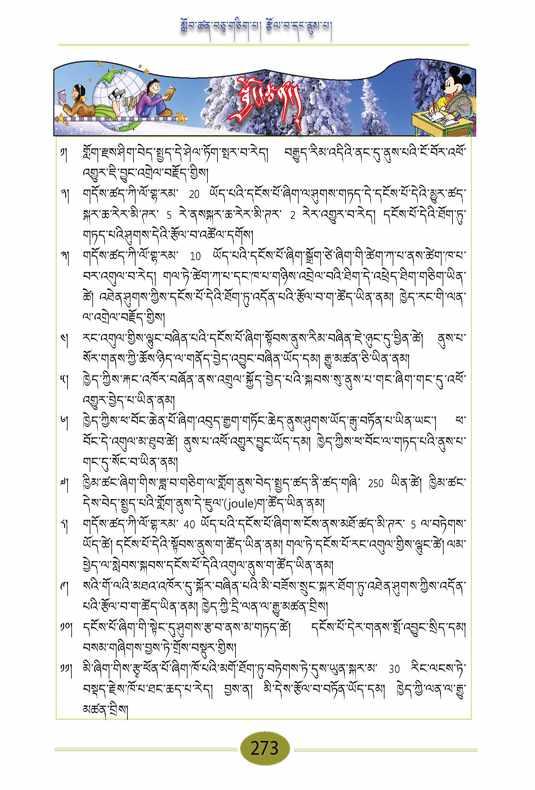 སློབ་ཚན་བཅུ་གཅིག་པ། རྩོལ་བ་དང་ནུས་པ།
སྦྱོང་ཚན།
༡། གློག་རྫས་ཤིག་བེད་སྤྱད་དེ་ཤེལ་ཏོག་སྤར་བ་རེད། བརྒྱུད་རིམ་འདིའི་ནང་དུ་ནུས་པའི་ངོ་བོར་འཕོ་
འགྱུར་ཇི་བྱུང་འགྲེལ་བརྗོད་གྱིས།
༢། གདོས་ཚད་ཀི་ལོ་གྷ་རམ་ 20 ཡོད་པའི་དངོས་པོ་ཞིག་ལ་ཤུགས་གཏད་དེ་དངོས་པོ་དེའི་མྱུར་ཚད་
སྐར་ཆ་རེར་མི་ཊར་ 5 རེ་ནས་སྐར་ཆ་རེར་མི་ཊར་ 2 རེར་འགྱུར་བ་རེད། དངོས་པོ་དེའི་ཐོག་ཏུ་
གཏད་པའི་ཤུགས་དེའི་རྩོལ་བ་འཚོལ་དགོས།
༣། གདོས་ཚད་ཀི་ལོ་གྷ་རམ་ 10 ཡོད་པའི་དངོས་པོ་ཞིག་སྒྲོག་ཙེ་ཞིག་གི་ཚེག་ཀ་པ་ནས་ཚེག་ཁ་པ་
བར་འགུལ་བ་རེད། གལ་ཏེ་ཚེག་ཀ་པ་དང་ཁ་པ་གཉིས་འབྲེལ་བའི་ཐིག་དེ་འཕྲེད་ཐིག་གཅིག་ཡིན་
ཚེ། འཐེན་ཤུགས་ཀྱིས་དངོས་པོ་དེའི་ཐོག་ཏུ་འདོན་པའི་རྩོལ་བ་ག་ཚོད་ཡིན་ནམ། ཁྱེད་རང་གི་ལན་
ལ་འགྲེལ་བརྗོད་གྱིས།
༤། རང་འགུལ་གྱིས་ལྷུང་བཞིན་པའི་དངོས་པོ་ཞིག་སྟོབས་ནུས་རིམ་བཞིན་ཇེ་ཉུང་དུ་ཕྱིན་ཚེ། ནུས་པ་
སོར་གནས་ཀྱི་ཆོས་ཉིད་ལ་གནོད་བྱེད་འབྱུང་བཞིན་ཡོད་དམ། རྒྱུ་མཚན་ཅི་ཡིན་ནམ།
༥། ཁྱེད་ཀྱིས་རྐང་འཁོར་བཞོན་ནས་འགྲུལ་སྐྱོད་བྱེད་པའི་སྐབས་སུ་ནུས་པ་གང་ཞིག་གང་དུ་འཕོ་
འགྱུར་བྱེད་པ་ཡིན་ནམ།
༦། ཁྱེད་ཀྱིས་ཕ་བོང་ཆེན་པོ་ཞིག་འབུད་རྒྱག་གཏོང་ཆེད་ནུས་ཤུགས་ཡོད་རྒུ་བཏོན་པ་ཡིན་ཡང་། ཕ་
བོང་དེ་འགུལ་མ་ཐུབ་ཚེ། ནུས་པ་འཕོ་འགྱུར་བྱུང་ཡོད་དམ། ཁྱེད་ཀྱིས་ཕ་བོང་ལ་གཏད་པའི་ནུས་པ་
གང་དུ་སོང་བ་ཡིན་ནམ།
༧། ཁྱིམ་ཚང་ཞིག་གིས་ཟླ་བ་གཅིག་ལ་གློག་ནུས་བེད་སྤྱད་ཚད་ནི་ཚད་གཞི་ 250 ཡིན་ཚེ། ཁྱིམ་ཚང་
དེས་བེད་སྤྱད་པའི་གློག་ནུས་དེ་ཇུལ་(joule)ག་ཚོད་ཡིན་ནམ།
༨། གདོས་ཚད་ཀི་ལོ་གྷ་རམ་ 40 ཡོད་པའི་དངོས་པོ་ཞིག་ས་ངོས་ནས་མཐོ་ཚད་མི་ཊར་ 5 ལ་བཏེགས་
ཡོད་ཚེ། དངོས་པོ་དེའི་སྟོབས་ནུས་ག་ཚོད་ཡིན་ནམ། གལ་ཏེ་དངོས་པོ་རང་འགུལ་གྱིས་ལྷུང་ཚེ། ལམ་
ཕྱེད་ལ་སླེབས་སྐབས་དངོས་པོ་དེའི་འགུལ་ནུས་ག་ཚོད་ཡིན་ནམ།
༩། སའི་གོ་ལའི་མཐའ་འཁོར་དུ་སྐོར་བཞིན་པའི་མི་བཟོས་སྲུང་སྐར་ཐོག་ཏུ་འཐེན་ཤུགས་ཀྱིས་འདོན་
པའི་རྩོལ་བ་ག་ཚོད་ཡིན་ནམ། ཁྱེད་ཀྱི་དྲི་ལན་ལ་རྒྱུ་མཚན་བྲིས།
༡༠། དངོས་པོ་ཞིག་གི་སྟེང་དུ་ཤུགས་རྩ་བ་ནས་མ་གཏད་ཚེ། དངོས་པོ་དེར་གནས་སྤོ་འབྱུང་སྲིད་དམ།
བསམ་གཞིགས་བྱས་ཏེ་གྲོས་བསྡུར་གྱིས།
༡༡། མི་ཞིག་གིས་རྩྭ་ཕོན་པོ་ཞིག་ཁོ་པའི་མགོ་ཐོག་ཏུ་བཏེགས་ཏེ་དུས་ཡུན་སྐར་མ་ 30 རིང་ལངས་ཏེ་
བསྡད་རྗེས་ཁོ་པ་ཐང་ཆད་པ་རེད། བྱས་ན། མི་དེས་རྩོལ་བ་བཏོན་ཡོད་དམ། ཁྱེད་ཀྱི་ལན་ལ་རྒྱུ་
མཚན་བྲིས།
273